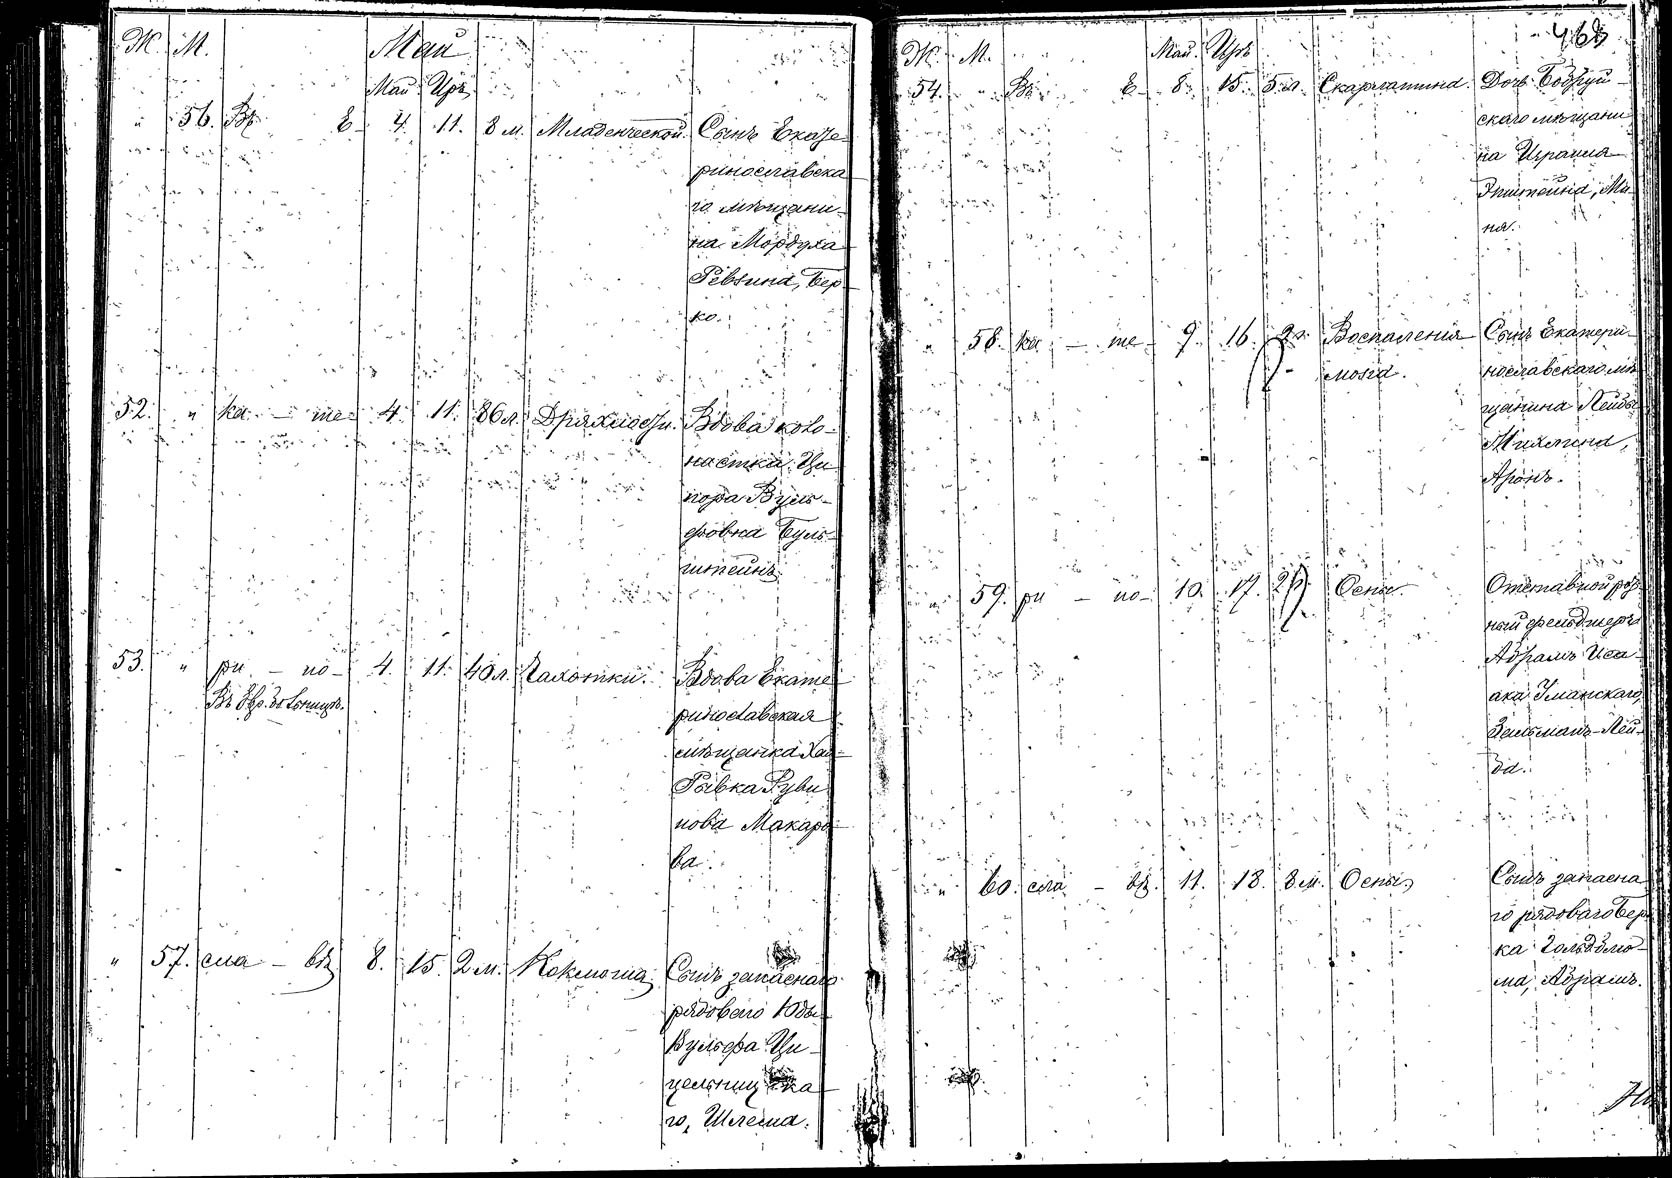 Ж. М. Май
Май Iръ
" 56. Въ Е- 4. 11. 8 м. Младенческой. Сынъ Екате-
ринославска-
го мѣщани-
на Мордуха
Ревзина, Бер-
ко.
52. " ка - те- 4. 11. 86 л. Дряхлости. Вдова коло-
нистка Ци-
пора Вуль-
фовна Буль-
штейнъ.
53. " ри - но- 4. 11. 40 л. Чахотки. Вдова Екате-
Въ Евр. больницѣ. ринославская
мѣщанка Хая-
Рывка Руви-
нова Макаро-
ва.
" 57. сла - вѣ. 8. 15. 2 м. Коклюша. Сынъ запаснаго
рядоваго Юды-
Вульфа Ци-
цельницка-
го, Шлема.
468
Ж. М. Май. Iръ
54. " Въ Е- 8. 15. 5 л. Скарлатина. Дочь Бобруй-
скаго мѣщани-
на Израиля
Эпштейна, Ми-
ня.
" 58. ка - те- 9. 16. 2 г. Воспаленія Сынъ Екатери-
мозга. нославскаго мѣ-
щанина Лейбы
Михлина,
Аронъ.
" 59. ри - но- 10. 17. Оспы. Отставной рот-
ный фельдшеръ
Абрамъ Иса-
ака Уманскаго,
Зельманъ-Лей-
ба.
" 60. сла - вѣ. 11. 18. 8 м. Оспы. Сынъ запасна-
го рядоваго Бер-
ка Гольдбло-
ма, Абрамъ.